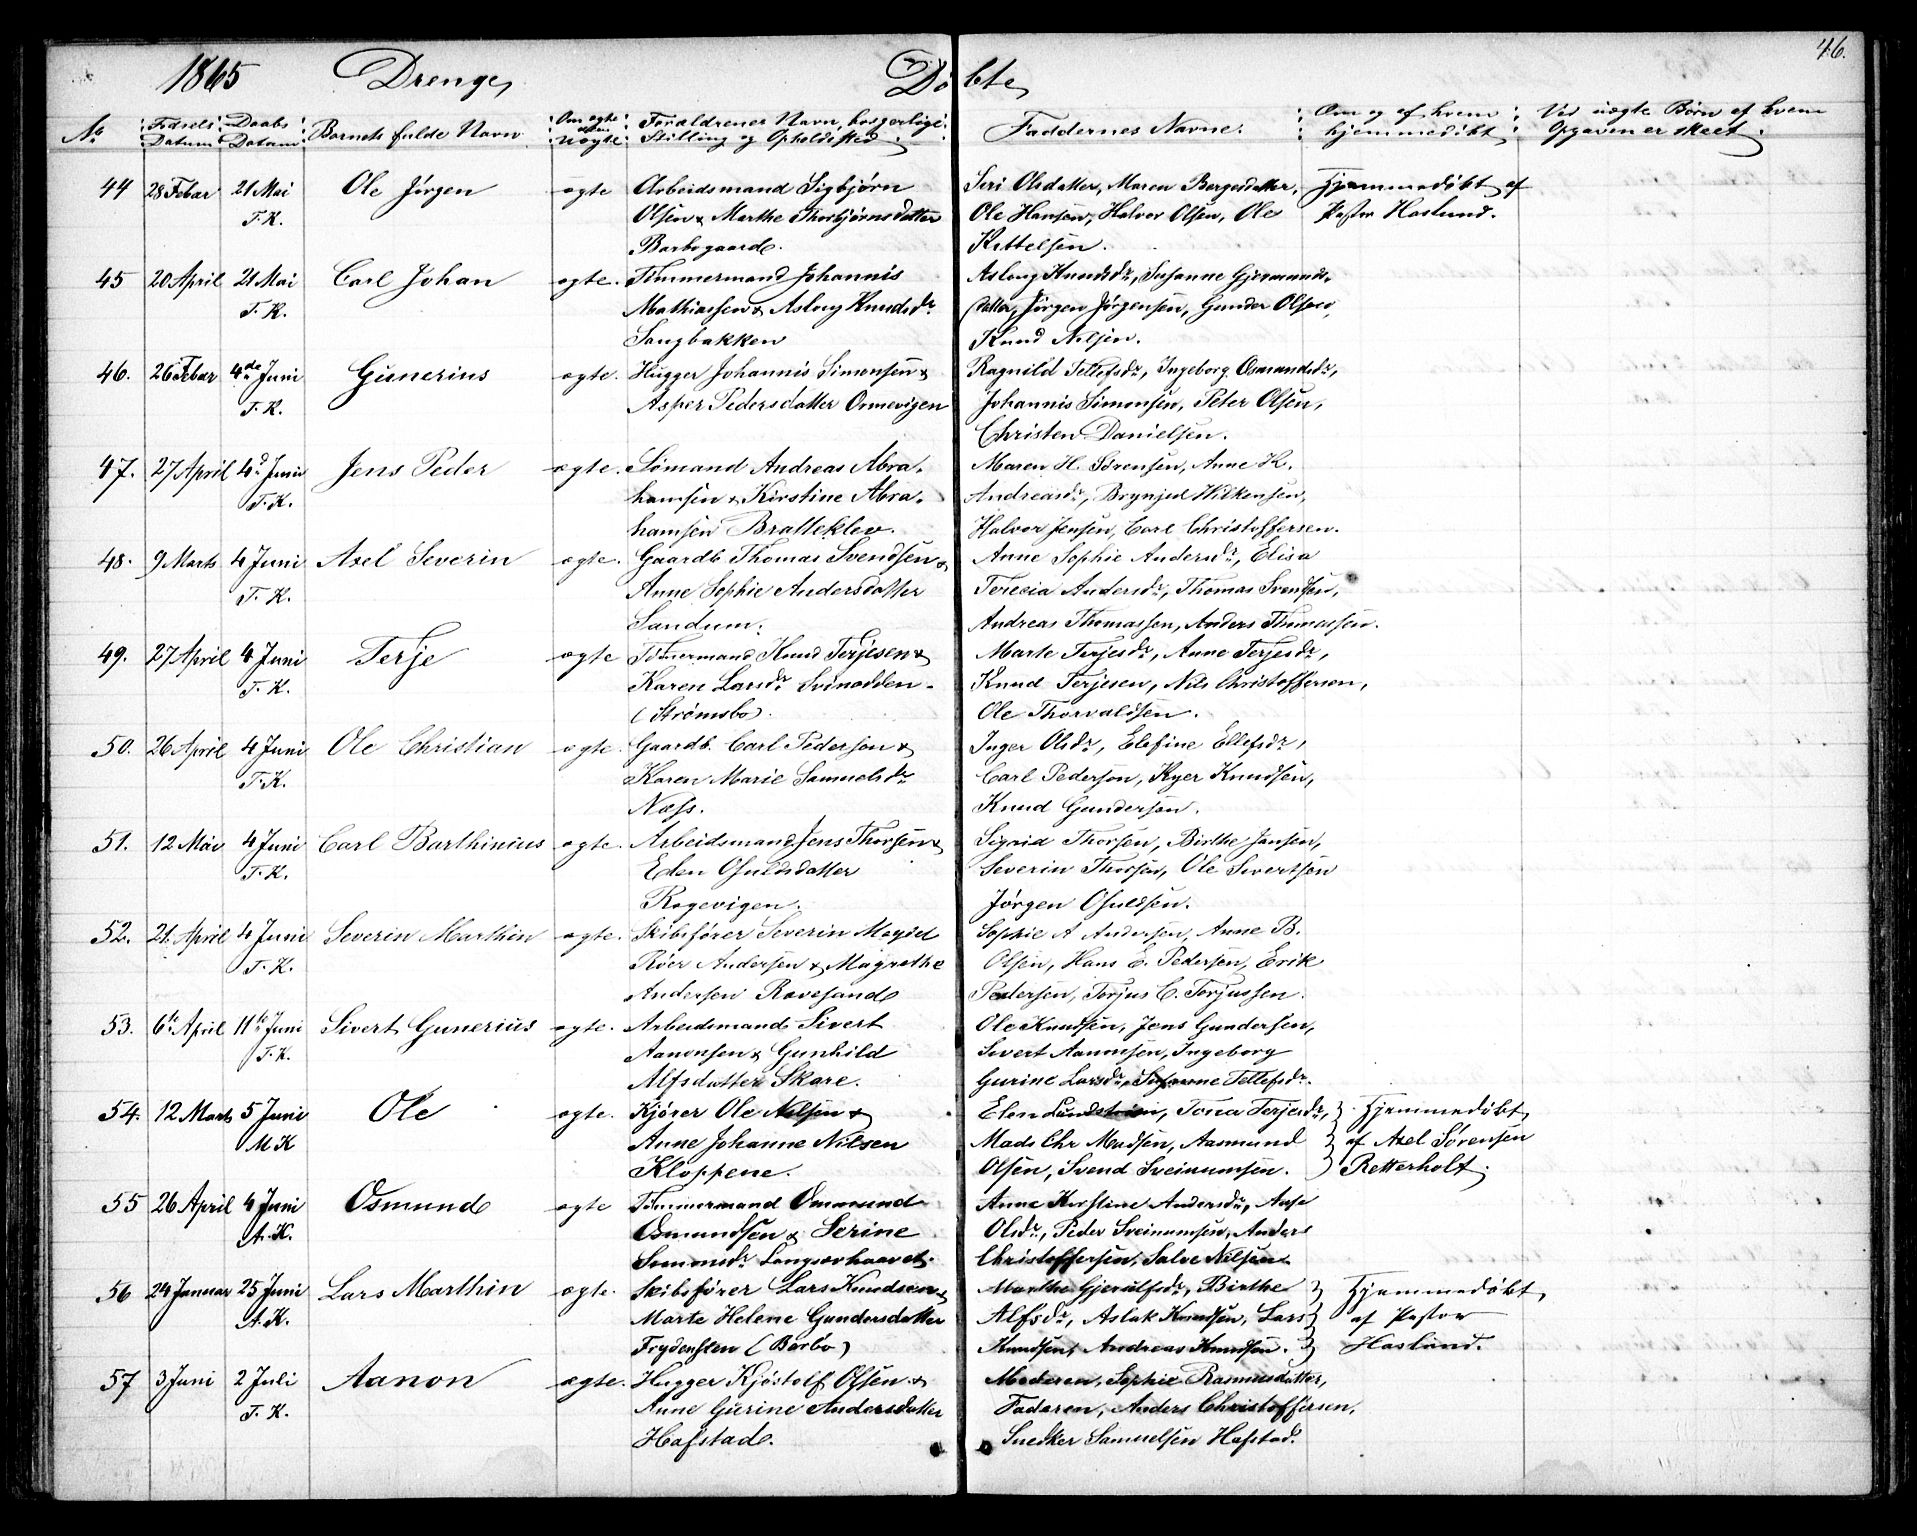 46.
1865 Drenge, Døbte,
No Fødsels Datum Daabs Datum Barnets fulde Navn Om ægte eller Uægte Forældrenes Navn, borgerlige Stilling og Opholdssted. Faddernes Navne. Om og af hvem hjemmedøbt Ved uægte Børn af hvem Opgaven er skeet.
44 28 Febar 21 Mai Ole Jörgen ægte Arbeidsmand Sigbjørn Siri Olsdatter, Maren Bergesdatter, Hjemmedöbt af
T. K. Olsen & Marthe Thorbjørnsdatter Ole Hansen, Halvor Olsen, Ole Pastor Haslund.
Barbogaard. Kittelsen.
45 20 April 21 Mai Carl Johan ægte. Tömmermand Johannis Aslaug Knudsdr, Susanne Gjermunds-
T. K. Mathiassen & Aslaug Knudsdr datter, Jörgen Jörgensen, Gunder Olsen,
Sangbakken Knud Nilsen.
46. 26 Febar 4de Juni Gunerius ægte. Hugger Johannis Simonsen & Ragnild Tellefsdr, Ingeborg Osmundsdr,
T. K. Asper Pedersdatter Onnevigen Johannis Simonsen, Peter Olsen,
Christen Danielsen.
47. 27 April 4d Juni Jens Peder ægte. Sömand Andreas Abra- Maren H. Sörensen, Anne K.
T. K. hamsen & Kirstine Abra- Andreasdr, Brynjul Hilkensen,
hamsen Bratteklev. Halvor Jensen, Carl Christoffersen.
48. 9 Marts 4 Juni Axel Severin ægte. Gaardb. Thomas Svendsen & Anne Sophie Andersdr, Elisa
T. K. Anne Sophie Andersdatter Terecia Andersdr, Thomas Svensen,
Sandum. Andreas Thomassen, Anders Thomassen.
49. 27 April 4 Juni Terje ægte Tömermand Knud Terjesen & Marte Terjesdr, Anne Terjesdr,
T. K. Karen Larsdr Svinodden - Knud Terjesen, Nils Christoffersen,
(Strømsbo). Ole Thorvaldsen.
50. 26 April 4 Juni Ole Christian ægte. Gaardb. Carl Pedersen & Inger Olsdr, Elefine Ellefsdr,
T. K. Karen Marie Samuelsdr Carl Pedersen, Kyer Knudsen,
Næss. Knud Gundersen.
51. 12 Mai 4 Juni Carl Barthinius ægte. Arbeidsmand Jens Thorsen & Sigrid Thorsen, Birthe Jansen,
T. K. Elen Osuldsdatter Severin Thorsen, Ole Sivertsen
Rogevigen. Jörgen Osuldsen.
52. 21. April 4 Juni Severin Marthin ægte. Skibsfører Severin Magid Sophie A Andersen, Anne B.
T. K. Röer Andersen & Magrethe Olsen, Hans E. Pedersen, Erik
Andersen Ravesand Pedersen, Torjus C. Torjussen.
53. 6te April 11te Juni Sivert Gunerius ægte. Arbeidsmand Sivert Ole Knudsen, Jens Gundersen,
T. K. Aanonsen & Gunhild Sivert Aanonsen, Ingeborg
Alfsdatter Skare. Gurine Larsdr, Susanne Tellefsdr.
54. 12 Marts 5 Juni Ole ægte. Kjører Ole Nilsen & Elen Lundström, Tona Terjesdr, Hjemmedöbt,
M K Anne Johanne Nilsen Mads Chr Madsen, Aasmund af Axel Sörensen
Kloppene. Olsen, Svend Sveinumsen. Retterholt.
55 26 April 4 Juni Osmund ægte Tömmermand Osmund Anne Kirstine Andersdr, Anne
A. K. Osmundsen & Serine Olsdr, Peder Sveinumsen, Anders
Simonsdr Langsævhavet. Christoffersen, Salve Nilsen
56 24 Januar 25 Juni Lars Marthin ægte. Skibsfører Lars Knudsen & Marthe Gjerulfsdr, Birthe Hjemmedöbt,
A. K. Marte Helene Gundersdatter Alfsdr, Aslak Knudsen, Lars af Pastor
Frydensten (Barbo) Knudsen, Andreas Knudsen. Haslund.
57 3 Juni 2 Juli Aanon ægte. Hugger Kjöstolf Olsen & Moderen, Sophie Rasmusdatter,
T. K. Anne Gurine Andersdatter Faderen, Anders Christoffersen,
Hafstad. Snedker Samuelsen Hafstad.